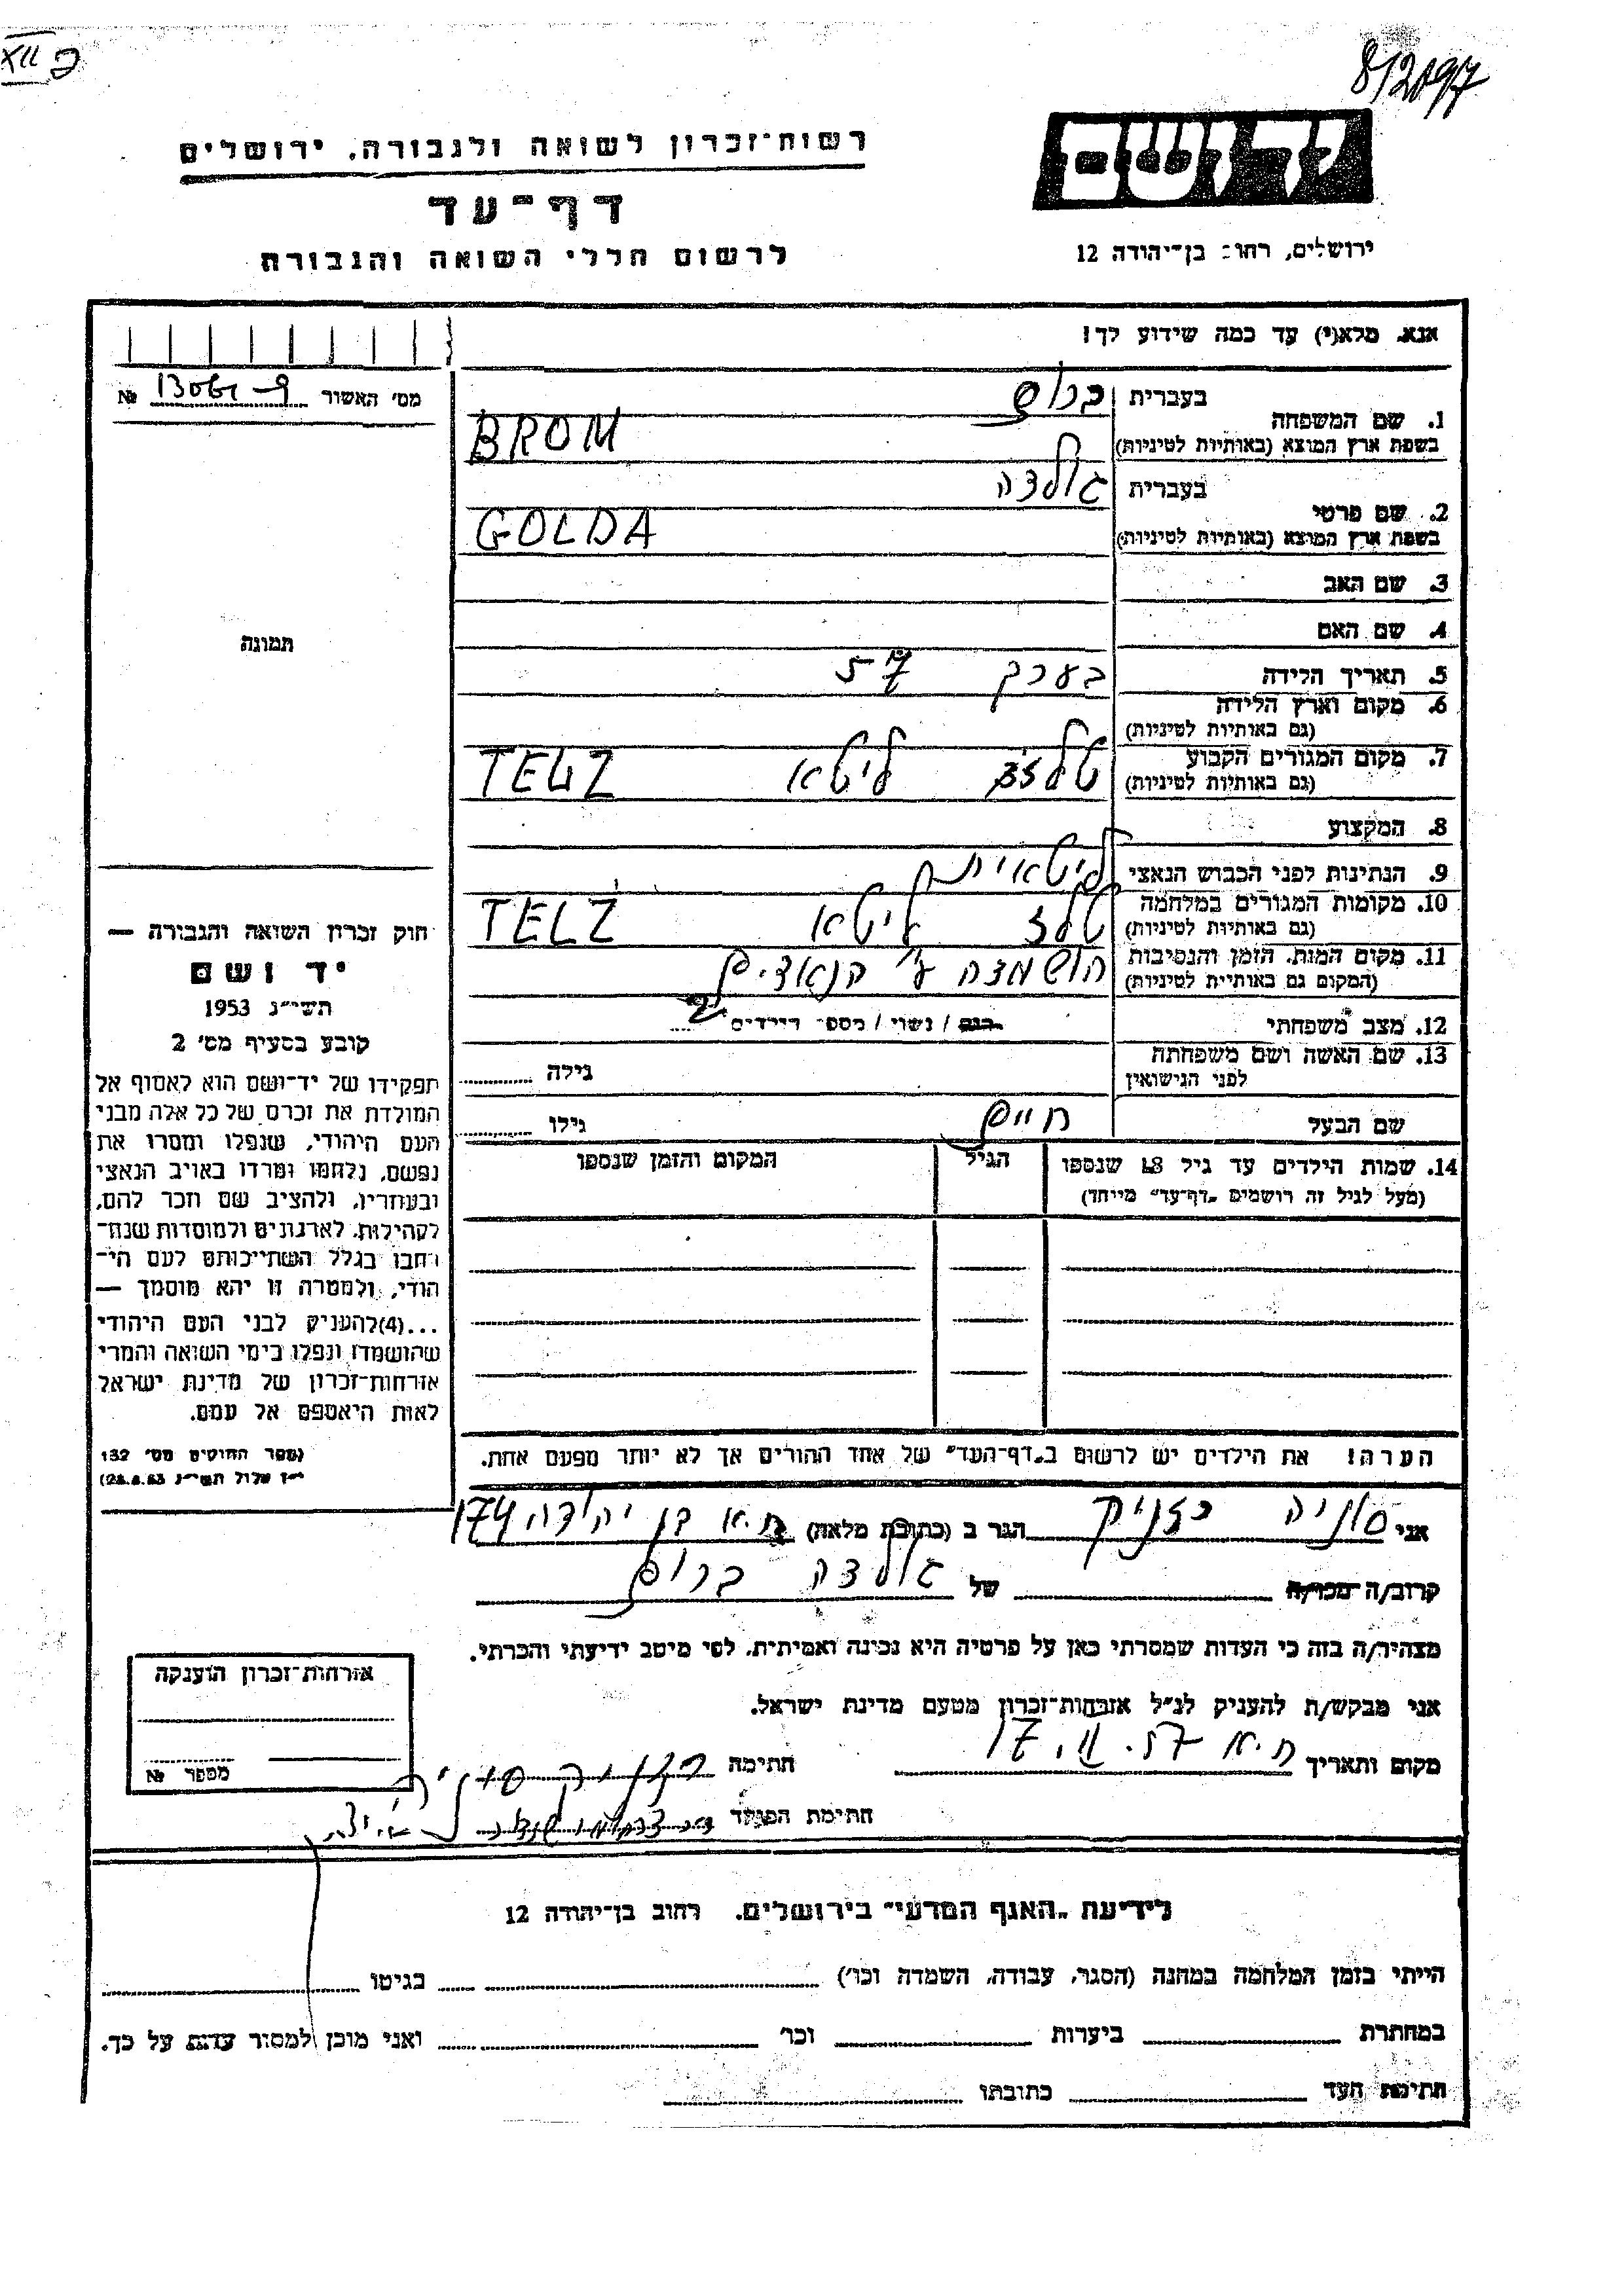 8/2097
יד ושם
ירושלים, רחוב בן־יהודה 12
רשות־זכרון לשואה ולגבורה, ירושלים
דף־עד
לרשום חללי השואה והגבורה
אנא, מלא(י) עד כמה שידוע לך!
מס׳ האשור №
1. שם המשפחה
בעברית ברום
בשפת ארץ המוצא (באותיות לטיניות) BROM
2. שם פרטי
בעברית גולדה
בשפת ארץ המוצא (באותיות לטיניות) GOLDA
3. שם האב
4. שם האם
5. תאריך הלידה בערך 57
6. מקום וארץ הלידה
(גם באותיות לטיניות)
7. מקום המגורים הקבוע טלז ליטא TELZ
(גם באותיות לטיניות)
8. המקצוע
9. הנתינות לפני הכבוש הנאצי ליטאית
10. מקומות המגורים במלחמה טלז ליטא TELZ
(גם באותיות לטיניות)
11. מקום המות, הזמן והנסיבות הושמדה ע״י הנאצים
(המקום גם באותיות לטיניות)
12. מצב משפחתי רווק / נשוי / מספר הילדים 2
13. שם האשה ושם משפחתה גילה
לפני הנישואין
שם הבעל חיים גילו
14. שמות הילדים עד גיל 18 שנספו הגיל המקום והזמן שנספו
(מעל לגיל זה רושמים „דף־עד״ מיוחד)
הערה! את הילדים יש לרשום ב„דף־העד״ של אחד ההורים אך לא יותר מפעם אחת.
תמונה
חוק זכרון השואה והגבורה —
יד ושם
תשי״ג 1953
קובע בסעיף מס׳ 2
תפקידו של יד־ושם הוא לאסוף אל
המולדת את זכרם של כל אלה מבני
העם היהודי, שנפלו ומסרו את
נפשם, נלחמו ומרדו באויב הנאצי
ובעוזריו, ולהציב שם וזכר להם,
לקהילות, לארגונים ולמוסדות שנח־
רבו בגלל השתייכותם לעם הי־
הודי, ולמטרה זו יהא מוסמך —
...(4)להעניק לבני העם היהודי
שהושמדו ונפלו בימי השואה והמרי
אזרחות־זכרון של מדינת ישראל
לאות היאספם אל עמם.
(ספר החוקים מס׳ 132
י״ז אלול תשי״ג 28.8.53)
אני סוניה רזניק הגר ב (כתובת מלאה) ת.א בן יהודה 174
קרוב/ה מכר/ה של גולדה ברום
מצהיר/ה בזה כי העדות שמסרתי כאן על פרטיה היא נכונה ואמיתית, לפי מיטב ידיעתי והכרתי.
אני מבקש/ת להעניק לנ״ל אזרחות־זכרון מטעם מדינת ישראל.
מקום ותאריך ת.א 17.II.57 חתימה רזניק סוניה
חתימת הפוקד
אזרחות־זכרון הוענקה
מספר №
לידיעת „האגף המדעי״ בירושלים, רחוב בן־יהודה 12
הייתי בזמן המלחמה במחנה (הסגר, עבודה, השמדה וכו׳) בגיטו
במחתרת ביערות וכו׳ ואני מוכן למסור עדות על כך.
חתימת העד כתובתו